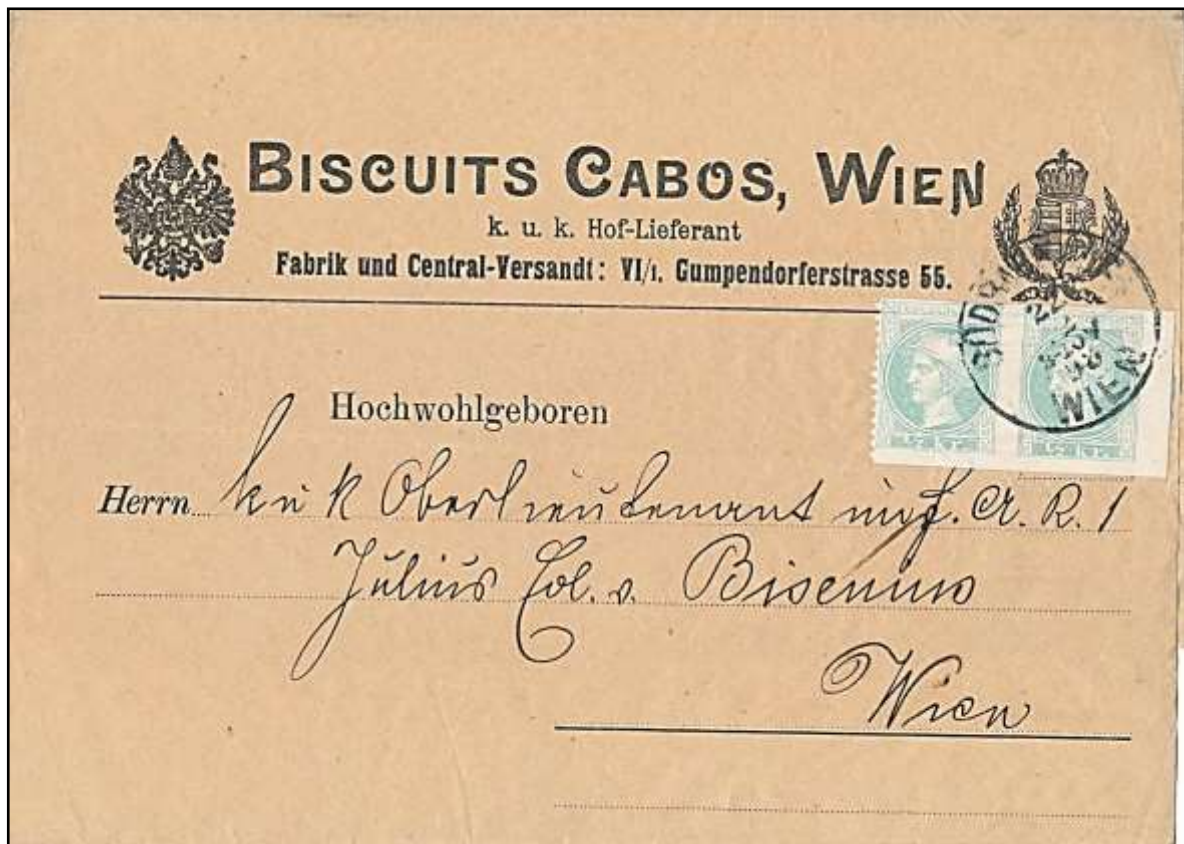 BISCUITS CABOS, WIEN
k. u. k. Hof-Lieferant
Fabrik und Central-Versandt: VI/1. Gumpendorferstrasse 55.
22
WIEN
Hochwohlgeboren
Herrn k u k Oberlieutenant A. R. 1
Julius Edl. v. Bisenius
Wien